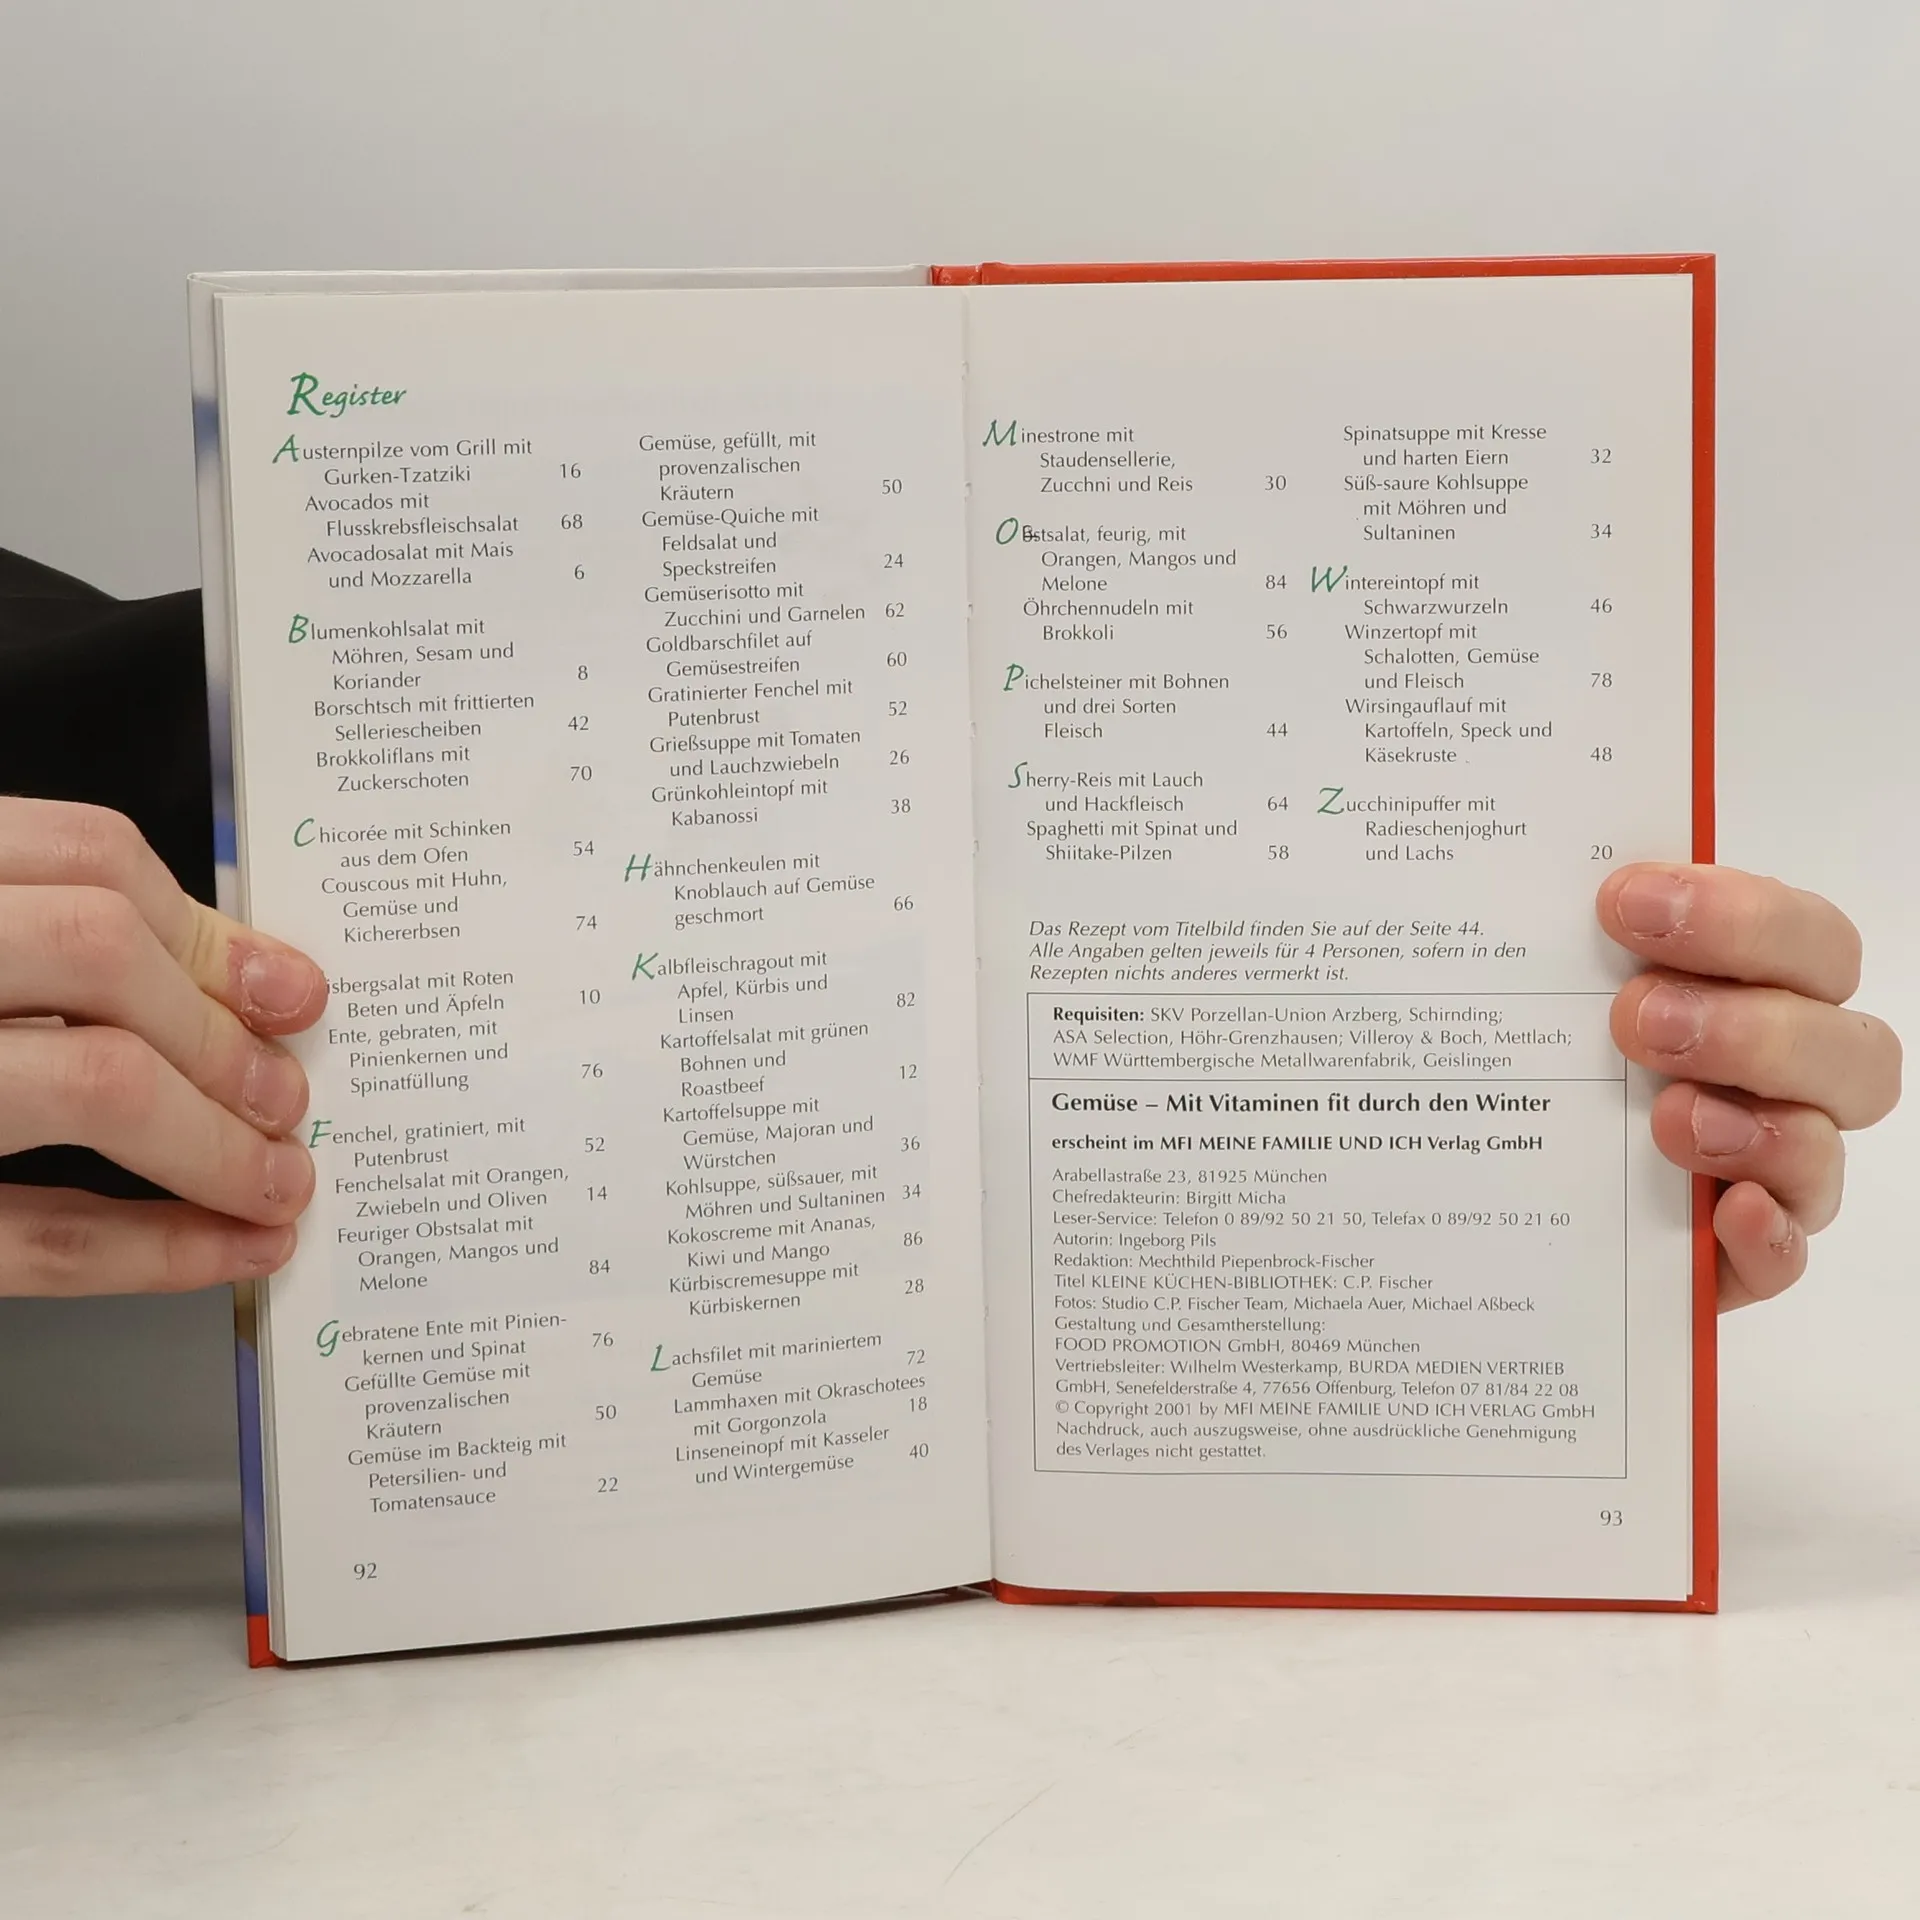 Register
Austernpilze vom Grill mit
Gurken-Tzatziki 16
Avocados mit
Flusskrebsfleischsalat 68
Avocadosalat mit Mais
und Mozzarella 6
Blumenkohlsalat mit
Möhren, Sesam und
Koriander 8
Borschtsch mit frittierten
Selleriescheiben 42
Brokkoliflans mit
Zuckerschoten 70
Chicorée mit Schinken
aus dem Ofen 54
Couscous mit Huhn,
Gemüse und
Kichererbsen 74
isbergsalat mit Roten
Beten und Äpfeln 10
Ente, gebraten, mit
Pinienkernen und
Spinatfüllung 76
Fenchel, gratiniert, mit
Putenbrust 52
Fenchelsalat mit Orangen,
Zwiebeln und Oliven 14
Feuriger Obstsalat mit
Orangen, Mangos und
Melone 84
Gebratene Ente mit Pinien-
kernen und Spinat 76
Gefüllte Gemüse mit
provenzalischen
Kräutern 50
Gemüse im Backteig mit
Petersilien- und
Tomatensauce 22
92
Gemüse, gefüllt, mit
provenzalischen
Kräutern 50
Gemüse-Quiche mit
Feldsalat und
Speckstreifen 24
Gemüserisotto mit
Zucchini und Garnelen 62
Goldbarschfilet auf
Gemüsestreifen 60
Gratinierter Fenchel mit
Putenbrust 52
Grießsuppe mit Tomaten
und Lauchzwiebeln 26
Grünkohleintopf mit
Kabanossi 38
Hähnchenkeulen mit
Knoblauch auf Gemüse
geschmort 66
Kalbfleischragout mit
Apfel, Kürbis und
Linsen 82
Kartoffelsalat mit grünen
Bohnen und
Roastbeef 12
Kartoffelsuppe mit
Gemüse, Majoran und
Würstchen 36
Kohlsuppe, süßsauer, mit
Möhren und Sultaninen 34
Kokoscreme mit Ananas,
Kiwi und Mango 86
Kürbiscremesuppe mit
Kürbiskernen 28
Lachsfilet mit mariniertem
Gemüse 72
Lammhaxen mit Okraschotees
mit Gorgonzola 18
Linseneinopf mit Kasseler
und Wintergemüse 40
Minestrone mit
Staudensellerie,
Zucchni und Reis 30
Obstsalat, feurig, mit
Orangen, Mangos und
Melone 84
Öhrchennudeln mit
Brokkoli 56
Pichelsteiner mit Bohnen
und drei Sorten
Fleisch 44
Sherry-Reis mit Lauch
und Hackfleisch 64
Spaghetti mit Spinat und
Shiitake-Pilzen 58
Spinatsuppe mit Kresse
und harten Eiern 32
Süß-saure Kohlsuppe
mit Möhren und
Sultaninen 34
Wintereintopf mit
Schwarzwurzeln 46
Winzertopf mit
Schalotten, Gemüse
und Fleisch 78
Wirsingauflauf mit
Kartoffeln, Speck und
Käsekruste 48
Zucchinipuffer mit
Radieschenjoghurt
und Lachs 20
Das Rezept vom Titelbild finden Sie auf der Seite 44.
Alle Angaben gelten jeweils für 4 Personen, sofern in den
Rezepten nichts anderes vermerkt ist.
Requisiten: SKV Porzellan-Union Arzberg, Schirnding;
ASA Selection, Höhr-Grenzhausen; Villeroy & Boch, Mettlach;
WMF Württembergische Metallwarenfabrik, Geislingen
Gemüse – Mit Vitaminen fit durch den Winter
erscheint im MFI MEINE FAMILIE UND ICH Verlag GmbH
Arabellastraße 23, 81925 München
Chefredakteurin: Birgitt Micha
Leser-Service: Telefon 0 89/92 50 21 50, Telefax 0 89/92 50 21 60
Autorin: Ingeborg Pils
Redaktion: Mechthild Piepenbrock-Fischer
Titel KLEINE KÜCHEN-BIBLIOTHEK: C.P. Fischer
Fotos: Studio C.P. Fischer Team, Michaela Auer, Michael Aßbeck
Gestaltung und Gesamtherstellung:
FOOD PROMOTION GmbH, 80469 München
Vertriebsleiter: Wilhelm Westerkamp, BURDA MEDIEN VERTRIEB
GmbH, Senefelderstraße 4, 77656 Offenburg, Telefon 07 81/84 22 08
© Copyright 2001 by MFI MEINE FAMILIE UND ICH VERLAG GmbH
Nachdruck, auch auszugsweise, ohne ausdrückliche Genehmigung
des Verlages nicht gestattet.
93